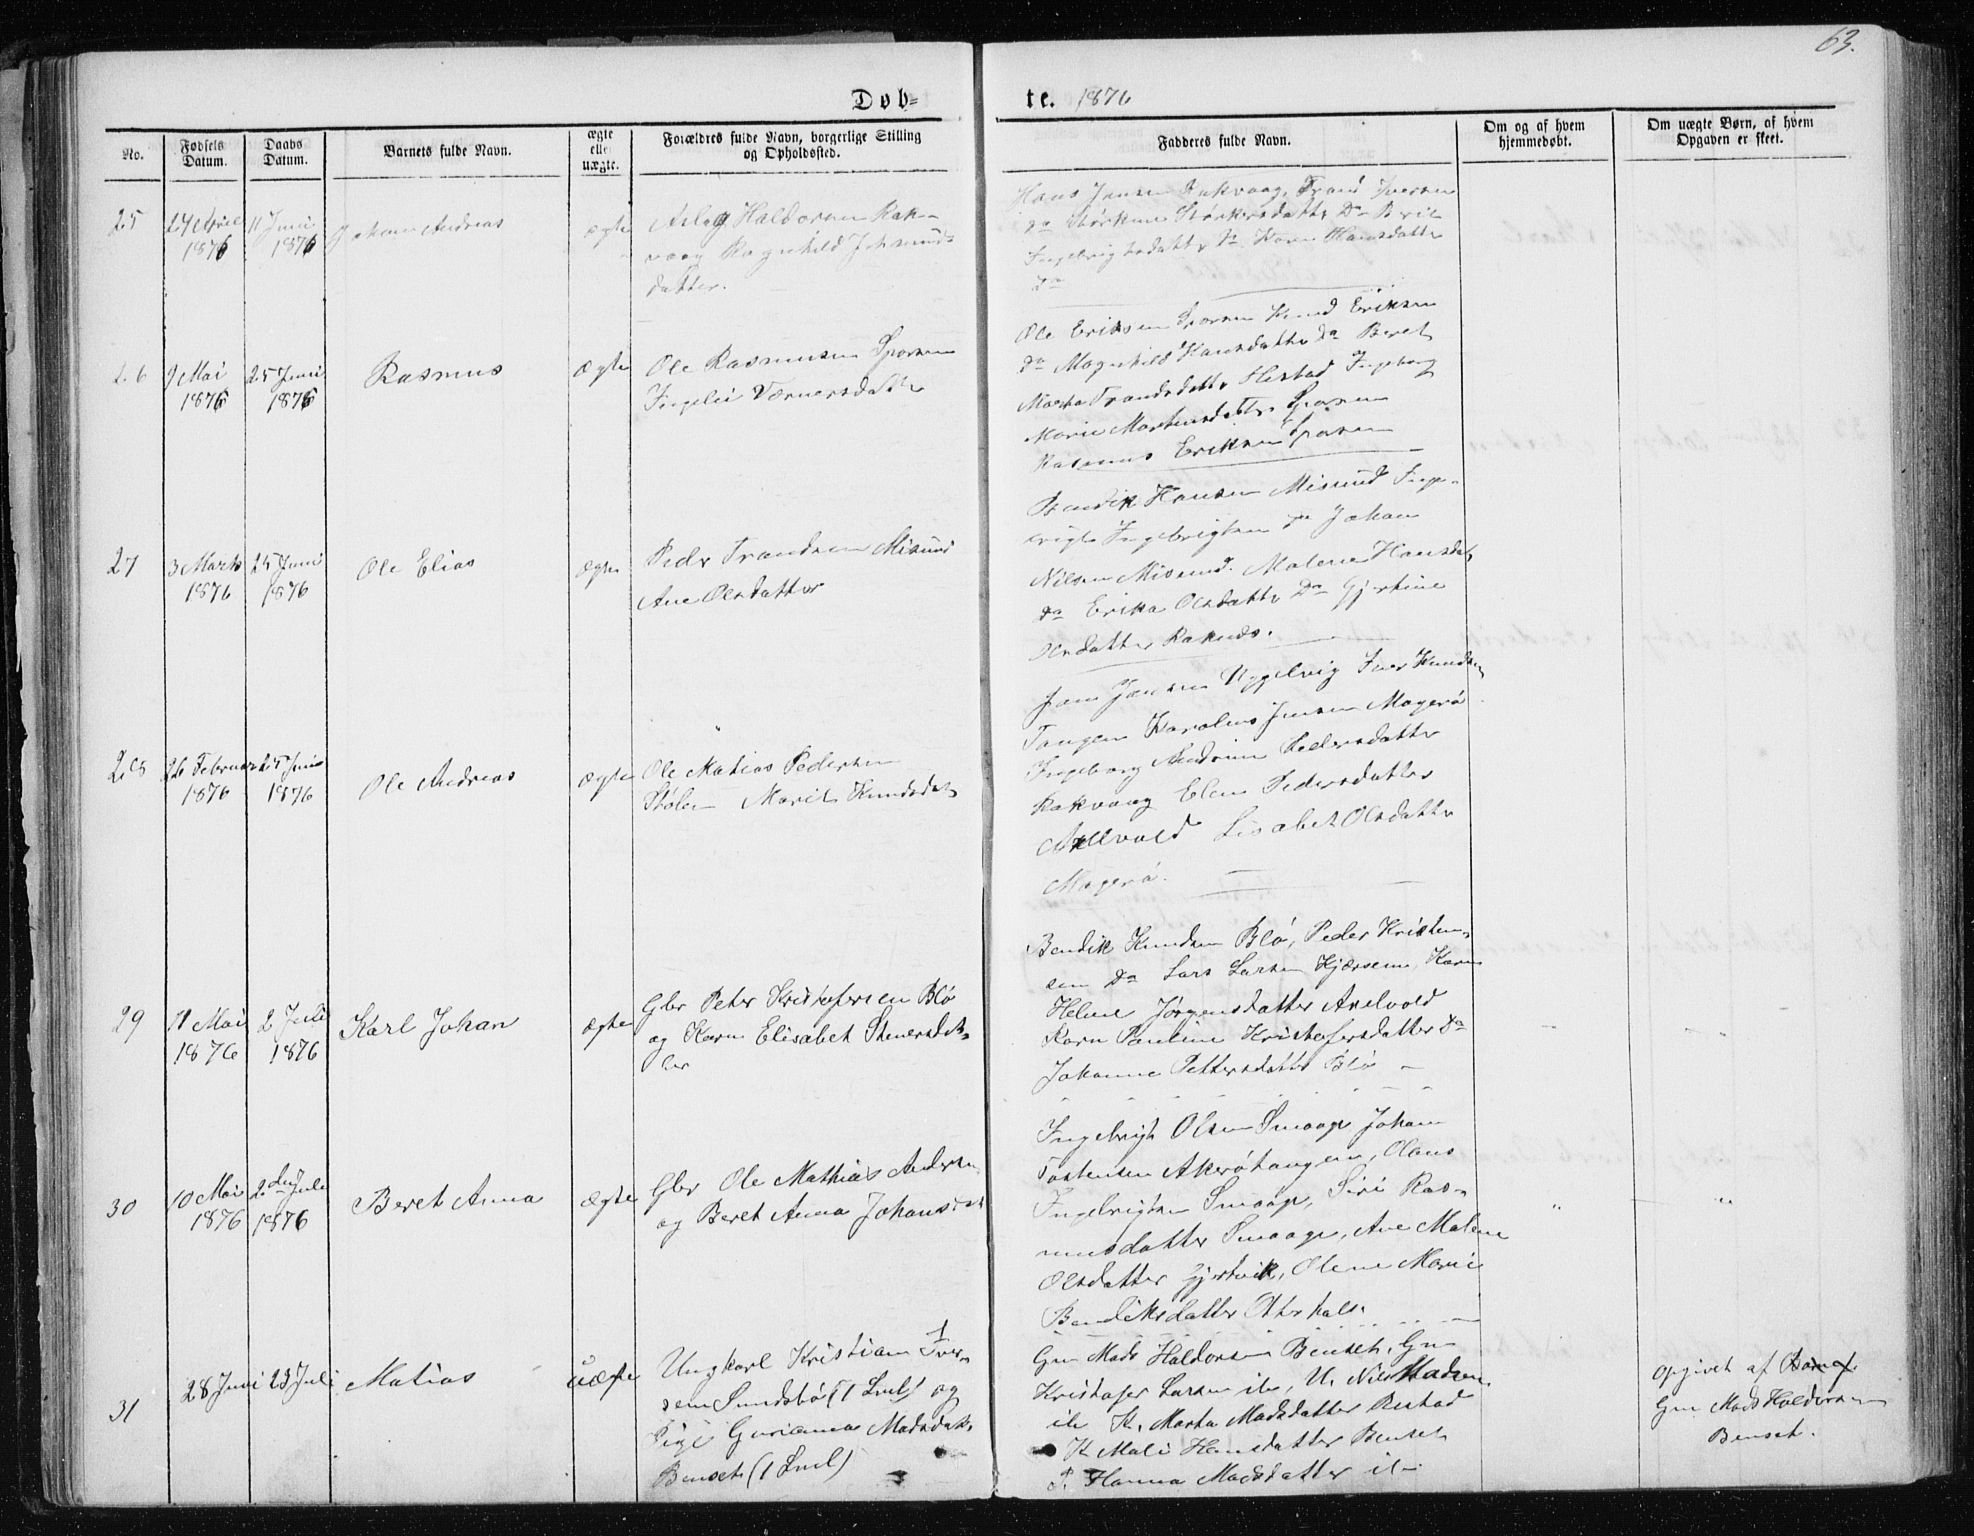 63.
Døb=
te. 1876
No.
Fødsels Datum.
Daabs Datum.
Barnets fulde Navn.
ægte eller uægte.
Forældres fulde Navn, borgerlige Stilling
og Opholdssted.
Fadderes fulde Navn.
Om og af hvem
hjemmedøbt.
Om uægte Børn, af hvem
Opgaven er skeet.
25
27 April
1876
11 Juni
1876
Johan Andreas
ægte
Aslag Haldorsen Rak-
vaag Ragnhild Johnsen
datter.
Hans Jansen Rakvaag, Trond Iversen
Do Størkersdatter Do Berit
Ingebrigtsdatter Do Karen Hansdatter
Do
26
9 Mai
1876
25 Juni
1876
Rasmus
ægte
Ole Rasmusen Sporsem
Ingelei Værnersdatter
Ole Eriksen Sporsem Knud Eriksen
Do Magnhild Hansdatter Do Beret
Marta Trondsdatter Hestad Ingeborg
Marie Mortensdatter Sporsem
Rasmus Eriksen Sporsem
27
3 Marts
1876
25 Juni
1876
Ole Elias
ægte
Peder Trondsen Misund
Ane Olsdatter
Bendik Hansen Misund Inge-
brigt Ingebrigtsen Do Johan
Nilsen Misund. Malene Hansdat
Do Erika Olsdatter Do Gjertine
Olsdatter Raknes.
28
26 Februar
1876
25 Juni
1876
Ole Andreas
ægte
Ole Matias Pedersen
Stølen Marit Knudsdat
Jan Jansen Uggelvig Iver Knudsen
Tangen Karolius Jensen Magerø
Ingeborg Andrine Pedersdatter
Rakvaag Elen Pedersdatter
Axelvold Lisabet Olsdatter
Magerø.
29
11 Mai
1876
2 Juli
1876
Karl Johan
ægte
Gbr Peter Kristofersen Blø
og Karn Elisabet Stenersdat-
ter
Bendik Knudsen Blø, Peder Kristen-
sen Do Lars Larsen Hjærsem, Karn
Heline Jørgensdatter Axelvold
Karn Pauline Kristofersdatter Do
Johanne Pettersdatter Blø
30
10 Mai
1876
2den Juli
1876
Beret Anna
ægte
Gbr Ole Mathias Andersen
og Beret Anna Johansdat
Ingebrigt Olsen Smaage Johan
Tostensen Akerøtangen, Olaus
Ingebrigtsen Smaage, Siri Ras-
musdatter Smaage, Ane Malene
Olsdatter Gjertvik, Olene Marie
Bendiksdatter Oterhals.
31
28 Juni
23 Juli
Matias
uægte
Ungkarl Kristian Iver-
sen Sundsbø (1 Lml) og
Pige Gurianna Madsdat.
Benset (1 Lml)
Gm Mads Haldorsen Benset, Gm
Kristofer Larsen ib, U. Nils Madsen
ib K. Marta Madsdatter Restad
K Mali Hansdatter Benset
P. Hanna Madsdatter ib
Opgivet af
Gm Mads Haldorsen
Benset.